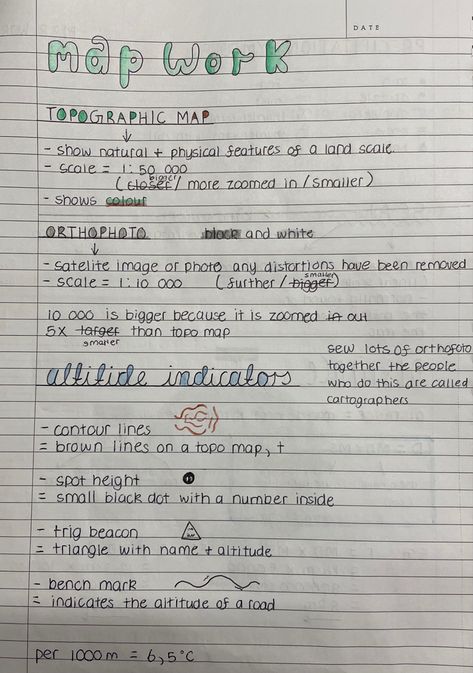 DATE
map work
TOPOGRAPHIC MAP
- show natural + physical features of a land scale.
- scale = 1:50 000
bigger
(closer / more zoomed in / smaller)
- shows colour
ORTHOPHOTO black and white
- satelite image or photo any distortions have been removed
smaller
- scale = 1:10 000 (further / bigger)
10 000 is bigger because it is zoomed in out
5x larger than topo map
smaller
sew lots of orthofoto
together the people
who do this are called
cartographers
altitide indicators
- contour lines
= brown lines on a topo map, +
- spot height
= small black dot with a number inside
- trig beacon
= triangle with name + altitude
- bench mark
= indicates the altitude of a road
per 1000m = 6,5°C